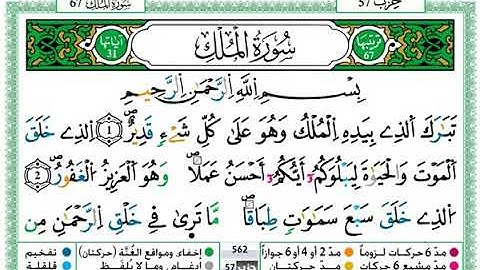 سُورَةُ المُلْك 67
حِزْب 57
آيَاتُهَا 31
سُورَةُ المُلْكِ
تَرْتِيبُهَا 67
بِسْمِ اللَّهِ الرَّحْمَٰنِ الرَّحِيمِ
تَبَارَكَ الَذِے بِيَدِهِ الْمُلْكُ وَهُوَ عَلَىٰ كُلِّ شَےْءٖ قَدِيرٌ 1 الذِے خَلَقَ
اَلْمَوْتَ وَالْحَيَوٰةَ لِيَبْلُوَكُمُۥٓ أَيُّكُمُۥٓ أَحْسَنُ عَمَلًا وَهُوَ اَلْعَزِيزُ الْغَفُورُ 2
الَذِے خَلَقَ سَبْعَ سَمَٰوَٰتٖ طِبَاقًا مَّا تَر۪ىٰ فِے خَلْقِ اِلرَّحْمَٰنِ مِن
مدّ 6 حركات لزوماً مدّ 2 أو 4 أو 6 جوازاً إخفاء، ومواقع الغُنَّة (حركتان) تفخيم
مدّ مشبع 6 حركات مدّ حركتان إدغام، وما لا يُلفَظ قلقلة
562
57